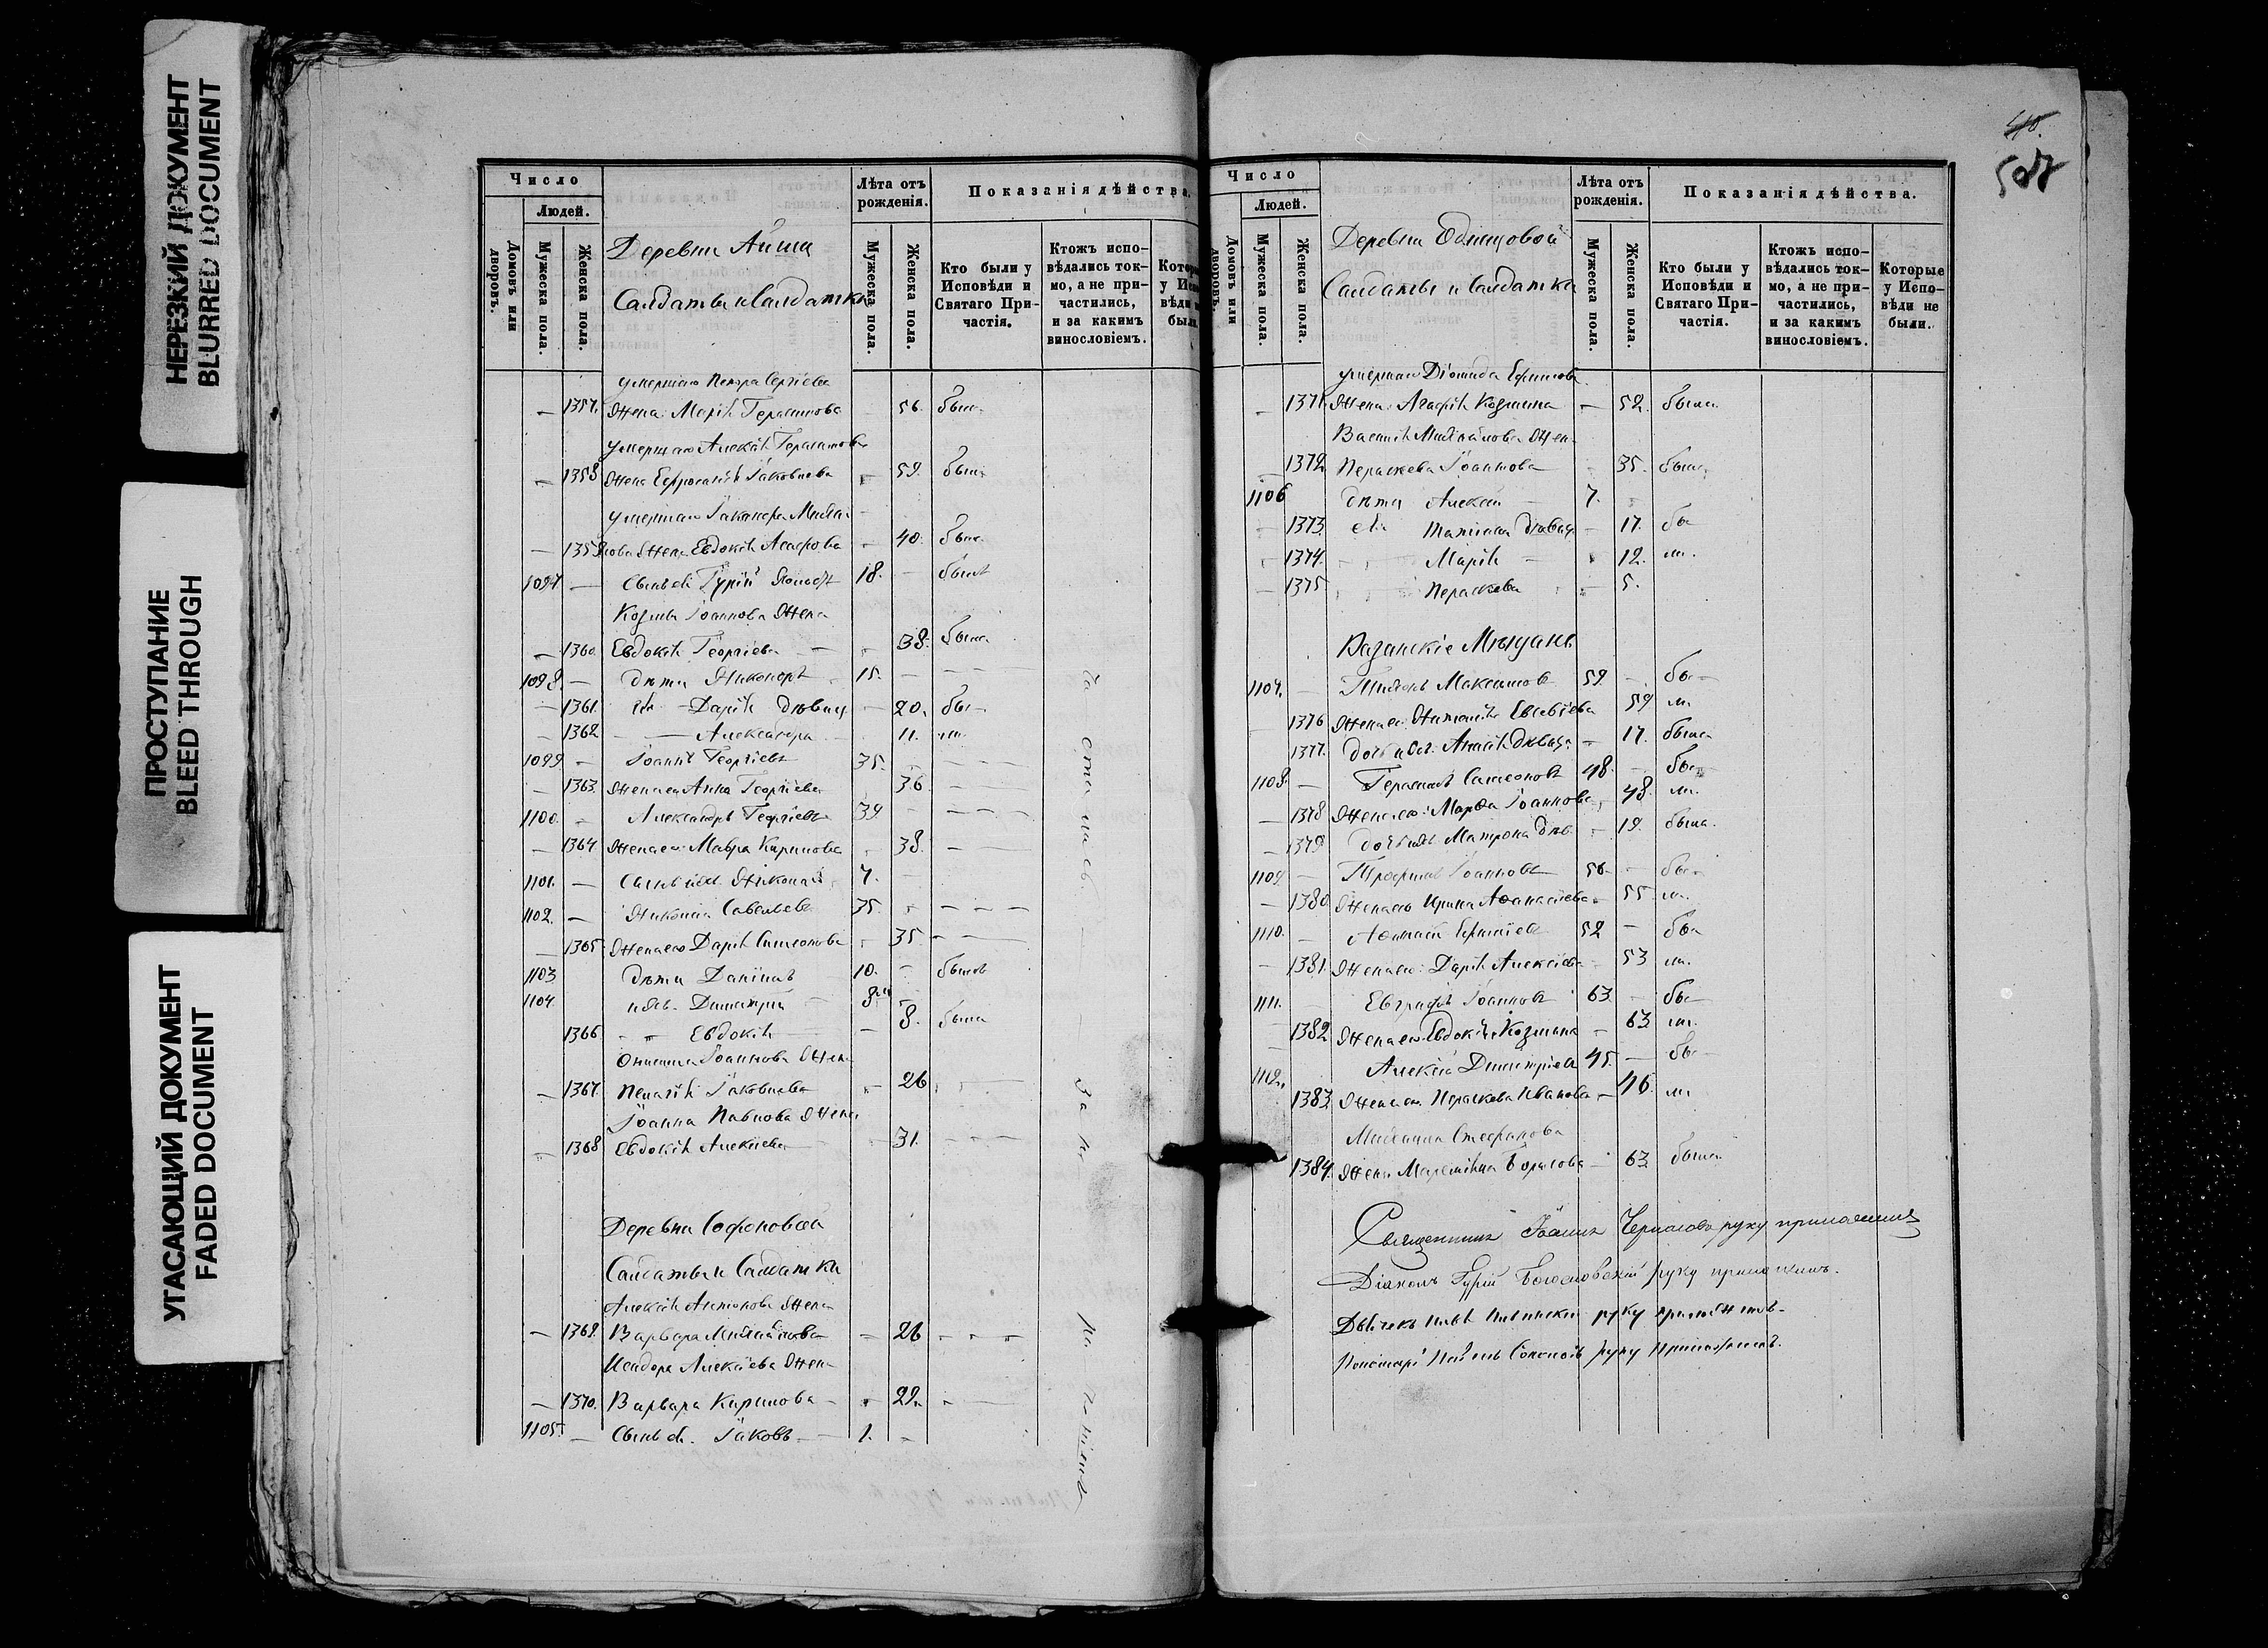 НЕРЕЗКИЙ ДОКУМЕНТ
BLURRED DOCUMENT
ПРОСТУПАНИЕ
BLEED THROUGH
УГАСАЮЩИЙ ДОКУМЕНТ
FADED DOCUMENT
Число
Людей.
Домовъ или дворовъ.
Мужеска пола.
Женска пола.
Деревни Айши
Салдаты и Салдатки
Лѣта отъ рожденія.
Мужеска пола.
Женска пола.
Показанія дѣйства.
Кто были у Исповѣди и Святаго При-частія.
Ктожъ испо-вѣдались ток-мо, а не при-частились, и за какимъ винословіемъ.
умершаго Петра Сергіева
— 1357. Жена Марія Герасимова — 56. была
умершаго Алексѣя Герасимова
— 1358 Жена Евфросинія Іаковлева — 59. была
умершаго
— 1359 Жена Евдокія — 40. была
1097 — Сынъ ея Гурій 18. — былъ
Козмы Іоаннова Жена
— 1360. Евдокія Георгіева — 38. была
1098. — дѣти Никаноръ 15. — —
— 1361. ея Дарія дѣвица — 20. бы-
— 1362 — Александра 11. ли.
1099 — Іоаннъ Георгіевъ 35. — — —
— 1363. Жена его Анна Георгіева 36 — —
1100. — Александръ Георгіевъ 39 — — —
— 1364. Жена его Мавра Кирилова — 38. — —
1101. — Сынъ ихъ Николай 7. —
1102. — Савельевъ 35. — — —
— 1365. Жена его Дарія Симеонова — 35. — —
1103 дѣти Даніилъ 10. — былъ
1104. ихъ Димитрій — 8 —
1366 — Евдокія — 8. была
Іоаннова Жена
— 1367. Пелагія Іаковлева — 26 — —
Іоанна Павлова Жена
— 1368 Евдокія Алексіева — 31. — — —
отлучкою
Деревни Софоновой
Салдаты и Салдатки
Алексія Антонова Жена
— 1369. Варвара Михайлова — 26 — — —
Исидора Алексіева Жена
— 1370. Варвара Кирилова — 22. — —
1105. — Сынъ ея Іаковъ — 1. —
40.
507
Число
Людей.
Домовъ или дворовъ.
Мужеска пола.
Женска пола.
Деревни Единцовой
Салдаты и Салдатки
Лѣта отъ рожденія.
Мужеска пола.
Женска пола.
Показанія дѣйства.
Кто были у Исповѣди и Святаго При-частія.
Ктожъ испо-вѣдались ток-мо, а не при-частились, и за какимъ винословіемъ.
Которые у Испо-вѣди не были.
умершаго Діомида Ефимова
— 1371. Жена Агафія Козмина — 52. была.
Василія Михайлова Жена
— 1372 Параскева Іоаннова — 35. была
1106 дѣти Алексѣй — 7. —
— 1373. ея Татіана дѣвица — 17. бы
— 1374. — Марія — 12. ли.
— 1375 — Параскева — 5.
Казанскіе Мѣщане
1107. — Максимовъ 59 — бы-
1376 Жена его Евсевіева 59 ли
1377. дочь ихъ дѣвица — 17. была
1108. — Герасимъ Симеоновъ 48. — бы-
— 1378 Жена его Марѳа Іоаннова — 48. ли.
— 1379 дочь ихъ Матрона дѣв. — 19. была.
1109. — Трофимъ Іоанновъ 56. — бы-
— 1380. Жена его Ирина Аѳанасіева — 55 ли.
1110. — 52 — бы
— 1381. Жена его Дарія Алексіева — 53 ли.
1111. — Евграфъ Іоанновъ 63. — бы-
— 1382 Жена его Евдокія Козмина — 63 ли.
1112. Алексій Димитріевъ 45. — бы-
1383. Жена его Параскева Иванова — 46. ли
Михаила Стефанова
1384. Жена Борисова — 63 была
Священникъ Іоаннъ руку приложилъ
Діаконъ Гурій Богословскій руку приложилъ.
Дьячекъ руку приложилъ.
Пономарь руку приложилъ.